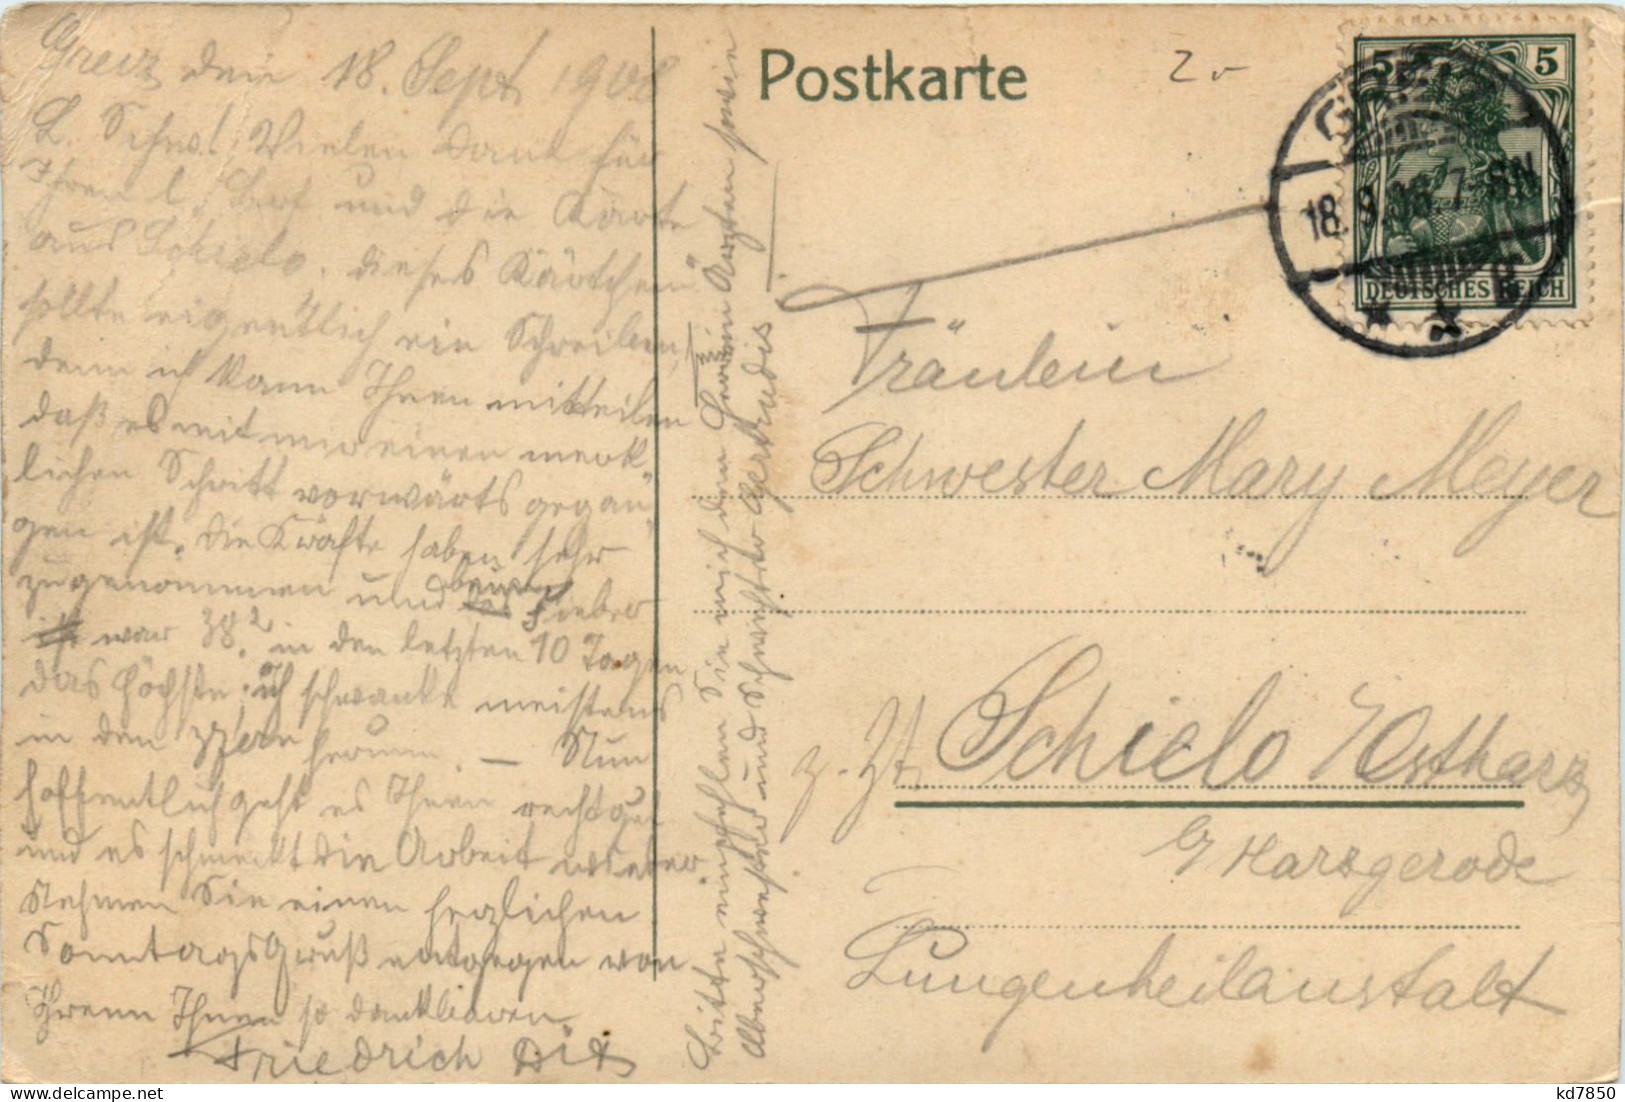 Greiz den 18. Sept 1908
L. Schw.! Vielen Dank für
Ihren l. Brf und die Karte
aus Schielo, dieses Kärtchen
sollte eigentlich ein Schreiben,
denn ich kann Ihnen mitteilen
daß es mit mir einen merk-
lichen Schritt vorwärts gegan-
gen ist. Die Kräfte haben sehr
zugenommen und Fieber
war 38.2 in den letzten 10 Tagen
das Höchste; ich schwanke meistens
in den herum. — Nun
hoffentlich geht es Ihnen recht gut
und es schmeckt die Arbeit wieder.
Nehmen Sie einen herzlichen
Sonntagsgruß entgegen von
Ihrem Ihnen so dankbaren
Friedrich
Bitte empfehlen Sie mich den Herren Ärzten sowie
und Schwester Gertrudis
Postkarte
2.-
5 5
DEUTSCHES REICH
GREIZ
18.9.08.7-8N
Fräulein
Schwester Mary Meyer
z. Zt. Schielo / Ostharz
b/ Harzgerode
Lungenheilanstalt
kd7850